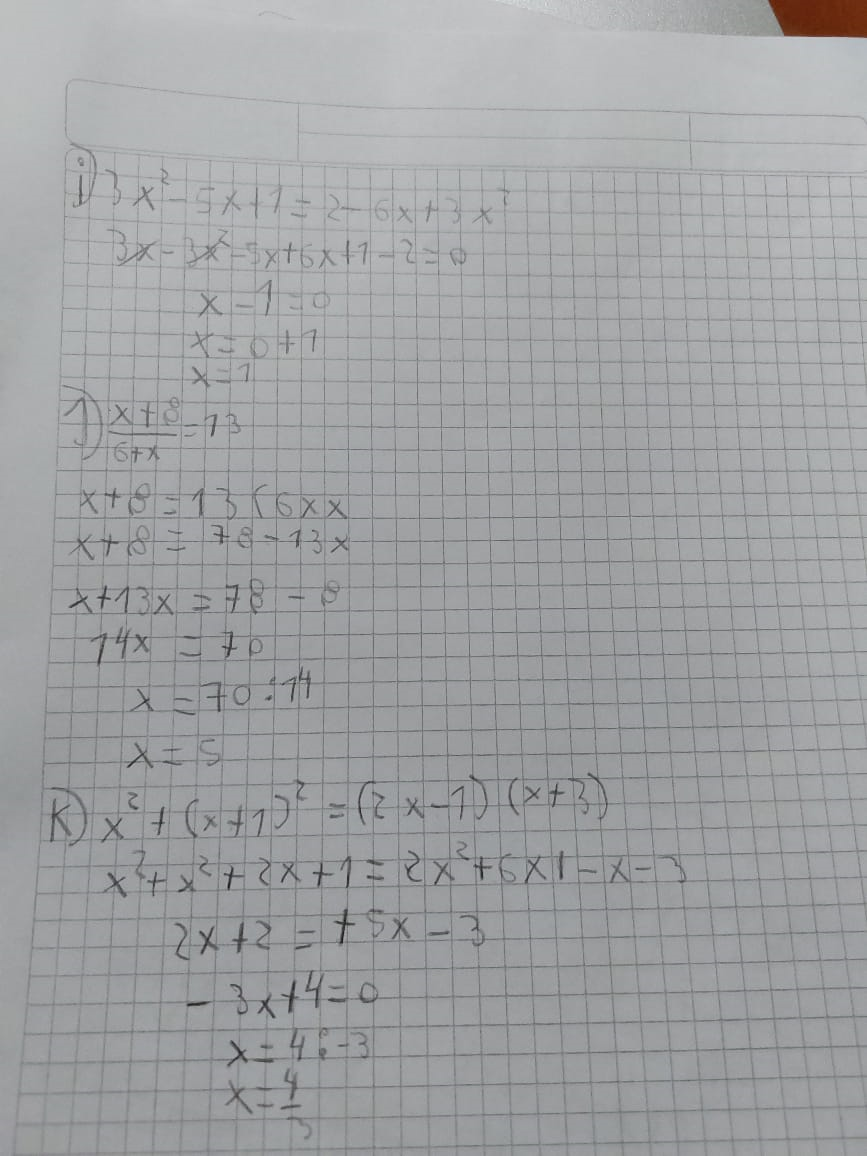 i) 3x² - 5x + 1 = 2 - 6x + 3x²
3x - 3x² - 5x + 6x + 1 - 2 = 0
x - 1 = 0
x = 0 + 1
x = 1
J) (x + 8)/(6 + x) = 13
x + 8 = 13 (6xx
x + 8 = 78 - 13x
x + 13x = 78 - 8
14x = 70
x = 70 : 14
x = 5
K) x² + (x + 1)² = (2x - 1) (x + 3)
x² + x² + 2x + 1 = 2x² + 6x1 - x - 3
2x + 2 = +5x - 3
- 3x + 4 = 0
x = 4 : -3
x = 4/3